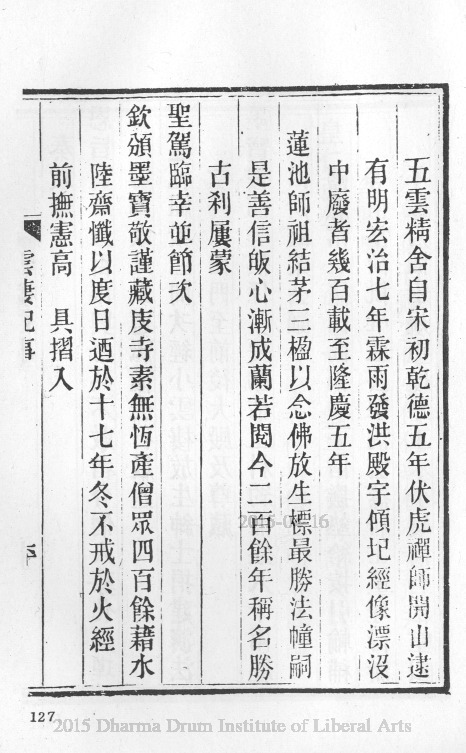 五雲精舍自宋初乾德五年伏虎禪師開山逮
有明宏治七年霖雨發洪殿宇傾圮經像漂沒
中廢者幾百載至隆慶五年
蓮池師祖結茅三楹以念佛放生標最勝法幢嗣
是善信皈心漸成蘭若閱今二百餘年稱名勝
古刹屢蒙
聖駕臨幸並節次
欽頒墨寶敬謹藏庋寺素無恆產僧眾四百餘藉水
陸齋懺以度日迺於十七年冬不戒於火經
前撫憲高 具摺入
雲棲紀事
2015-03-16
127
2015 Dharma Drum Institute of Liberal Arts